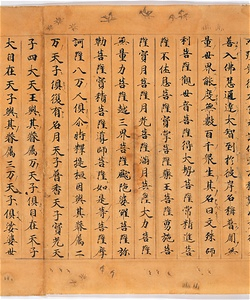 善入佛慧通達大智到於彼岸名稱普聞無
量世界能度無數百千眾生其名曰文殊師
利菩薩觀世音菩薩得大勢菩薩常精進菩
薩不休息菩薩寶掌菩薩藥王菩薩勇施菩
薩寶月菩薩月光菩薩滿月菩薩大力菩薩
無量力菩薩越三界菩薩颰陀婆羅菩薩彌
勒菩薩寶積菩薩導師菩薩如是等菩薩摩
訶薩八万人俱爾時釋提桓因與其眷屬二
万天子俱復有名月天子普香天子寶光天
子四大天王與其眷屬万天子俱自在天子
大自在天子與其眷屬三万天子俱娑婆世